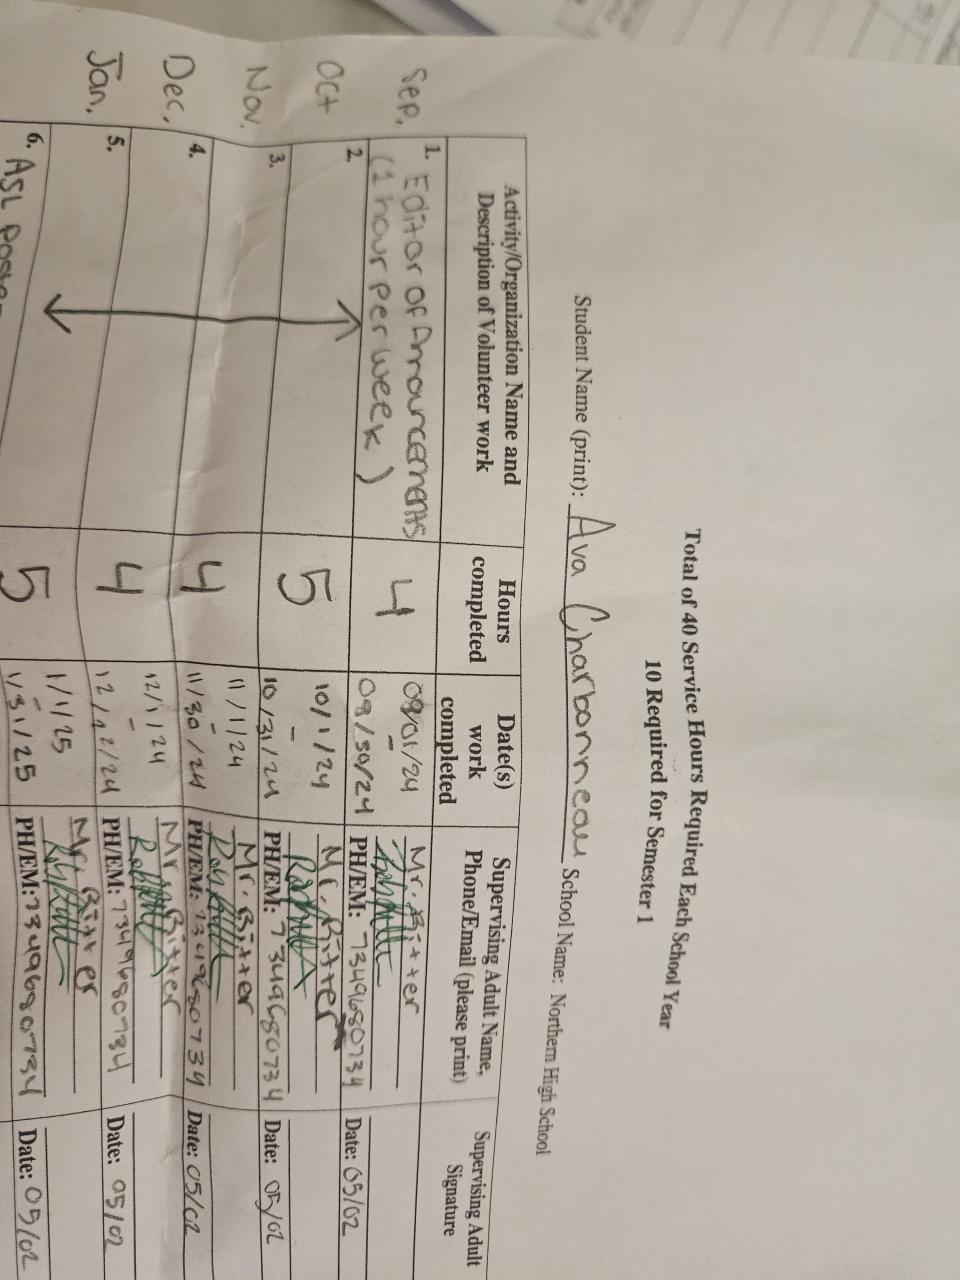 Total of 40 Service Hours Required Each School Year
10 Required for Semester 1
Student Name (print): Ava Charbonneau School Name: Northern High School
Activity/Organization Name and Description of Volunteer work
Hours completed
Date(s) work completed
Supervising Adult Name, Phone/Email (please print)
Supervising Adult Signature
Sep.
1. Editor of Announcements
(1 hour per week)
4
09/01/24
-
09/30/24
Mr. Bitter
PH/EM: 7349680734
Date: 05/02
Oct
2
5
10/1/24
-
10/31/24
Mr. Bitter
PH/EM: 7349680734
Date: 05/02
Nov.
3.
4
11/1/24
-
11/30/24
Mr. Bitter
PH/EM: 7349680734
Date: 05/02
Dec.
4.
4
12/1/24
-
Mr. Bitter
PH/EM: 7349680734
Date: 05/02
Jan.
5.
5
1/1/25
-
1/31/25
Mr. Bitter
PH/EM: 7349680734
Date: 05/02
6. ASL Poster